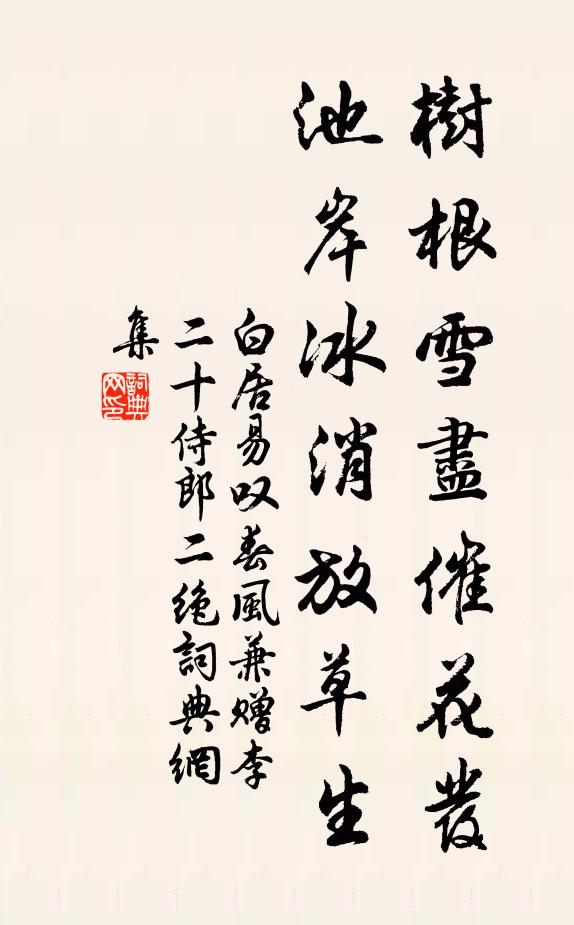 樹根雪盡催花發
池岸冰消放草生
白居易叹春風兼赠李
二十侍郎二绝詞典網
集
詞典
网印